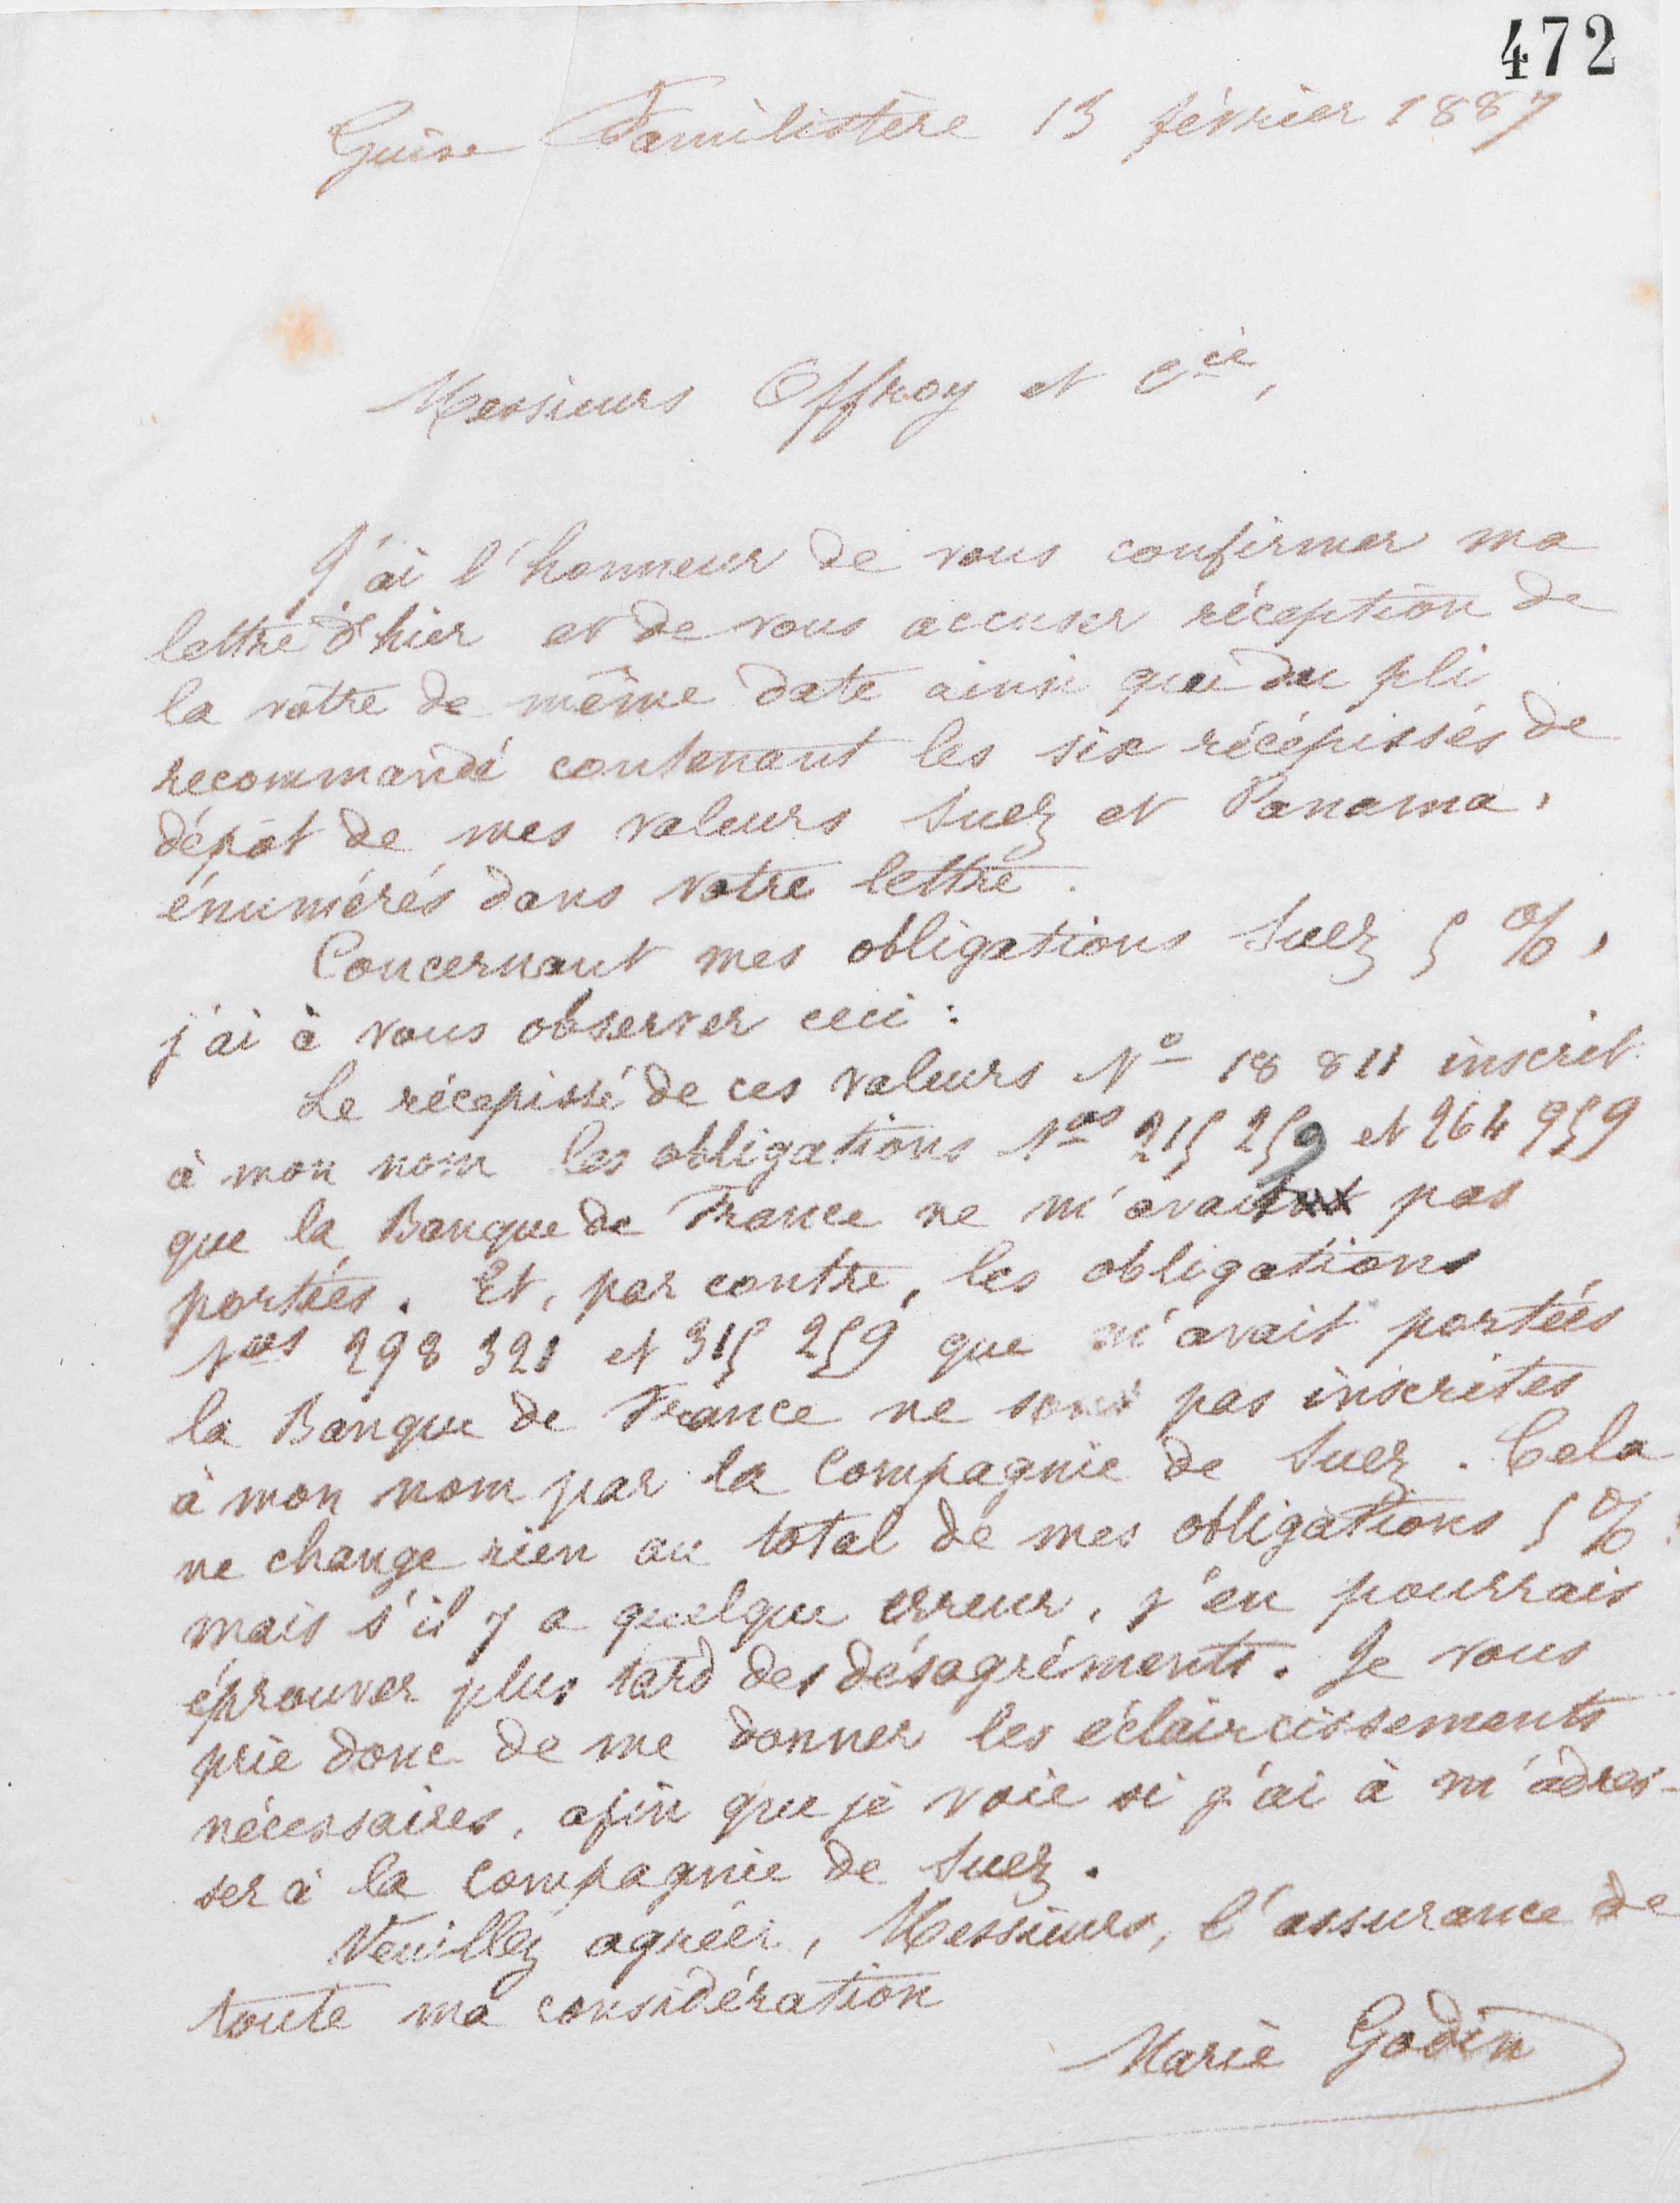 472
Guise Familistère 13 février 1887
Messieurs Offroy et Cie,
J'ai l'honneur de vous confirmer ma
lettre d'hier et de vous accuser réception de
la vôtre de même date ainsi que du pli
recommandé contenant les six récépissés de
dépôt de mes valeurs Suez et Panama,
énumérés dans votre lettre.
Concernant mes obligations Suez 5 %,
j'ai à vous observer ceci :
Le récépissé de ces valeurs No 18 811 inscrit
à mon nom les obligations Nos 215 259 et 264 959
que la Banque de France ne m'avait pas
portées. Et, par contre, les obligations
Nos 298 321 et 315 259 que m'avait portées
la Banque de France ne sont pas inscrites
à mon nom par la Compagnie de Suez. Cela
ne change rien au total de mes obligations 5 %
mais s'il y a quelque erreur, j'en pourrais
éprouver plus tard des désagréments. Je vous
prie donc de me donner les éclaircissements
nécessaires, afin que je voie si j'ai à m'adres-
ser à la Compagnie de Suez.
Veuillez agréer, Messieurs, l'assurance de
toute ma considération
Marie Godin